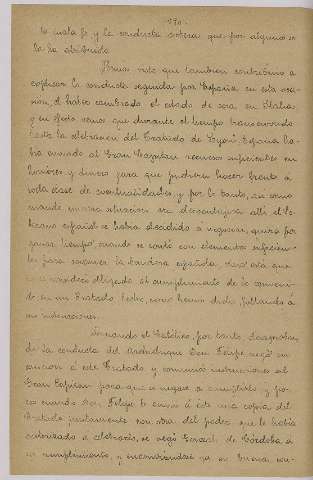 170.
la mala fe y la conducta artera que por algunos se
le ha atribuido.
Pero visto que tambien contribuyó a
explicar la conducta seguida por España en esta oca-
sion, el haber cambiado el estado de cosas en Italia,
y en efecto vemos que durante el tiempo transcurrido
hasta la celebracion del Tratado de Lyon España ha-
bia enviado al Gran Capitan recursos suficientes en
hombres y dinero para que pudiera hacer frente á
toda clase de eventualidades, y por lo tanto, asi como
cuando en una situacion de desventaja alli el So-
berano español se habia decidido á negociar, quizá por
ganar tiempo, cuando se contó con elementos suficien-
tes para sostener la bandera española,
se á obligado al cumplimiento de lo conveni-
do en un Tratado hecho, como hemos dicho, faltando á
sus instrucciones.
Fernando el Católico, por tanto, desaprobó
de la conducta del Archiduque Don Felipe negó su
sancion á este Tratado y comunicó instrucciones al
Gran Capitan para que se negase a cumplirlo, y por
eso cuando Don Felipe le envió á éste una copia del
Tratado juntamente con otra del poder que le habia
autorizado a celebrarlo, se negó Gonzalo de Córdoba a
su cumplimiento, y encontrándose ya en buena con-